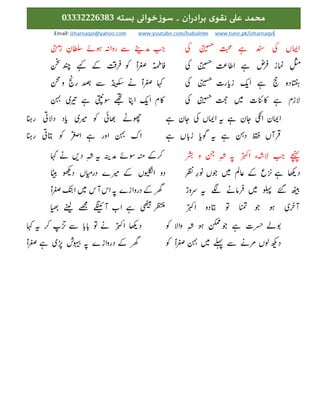 محمد علی نقوی برادران ۔ سوزخوانی بستہ 03332226383
Email: icharnaqvi@yahoo.com www.youtube.com/babulnlm www.tune.pk/icharnaqvi
ایماں کی سند ہے محبت حسینؑ کی
مثلِ نماز فرض ہے اطاعت حسینؑ کی
ہفتادہ حج ہے ایک زیارت حسینؑ کی
لازم ہے کائنات میں حجت حسینؑ کی
ایمان اُنکی جان ہے یہ ایماں کی جان ہے
قرآں فقط دہن ہے یہ گویا زباں ہے
پہنچے جب لاشۂ اکبرؑ پہ شہِ جن و بشر
دیکھا ہے نزع کے عالم میں جوں نورِ نظر
بیٹھ گئے پہلو میں فرمانے لگے یہ سرورؑ
آخری ہو جو تمنا تو بتادو اکبرؑ
بولے حسرت ہے جو ممکن ہو شہِ والا کو
دیکھ لوں مرنے سے پہلے میں بہن صغراؑ کو
جب مدینے سے روانہ ہوئے سلطانِ زمنؑ
فاطمہ صغراؑ کو فرقت کے کہے چند سخن
کہا صغراؑ نے سکینہؑ سے بصد رنج و محن
کام ایک اپنا تجھے سونپتی ہے تیری بہن
چھوٹے بھائی کو میری یاد دلاتی رہنا
اک بہن اور ہے اصغرؑ کو بتاتی رہنا
کرکے منہ سوئے مدینہ یہ شہِ دیں نے کہا
دو انگلیوں کے میرے درمیاں دیکھو بیٹا
گھر کے دروازے پہ اس آس میں ابتک صغراؑ
منتظر بیٹھی ہے اب آئینگے مجھے لینے بھیا
دیکھا اکبرؑ نے تو بابا سے تڑپ کر یہ کہا
گھر کے دروازے پہ بیہوش پڑی ہے صغراؑ